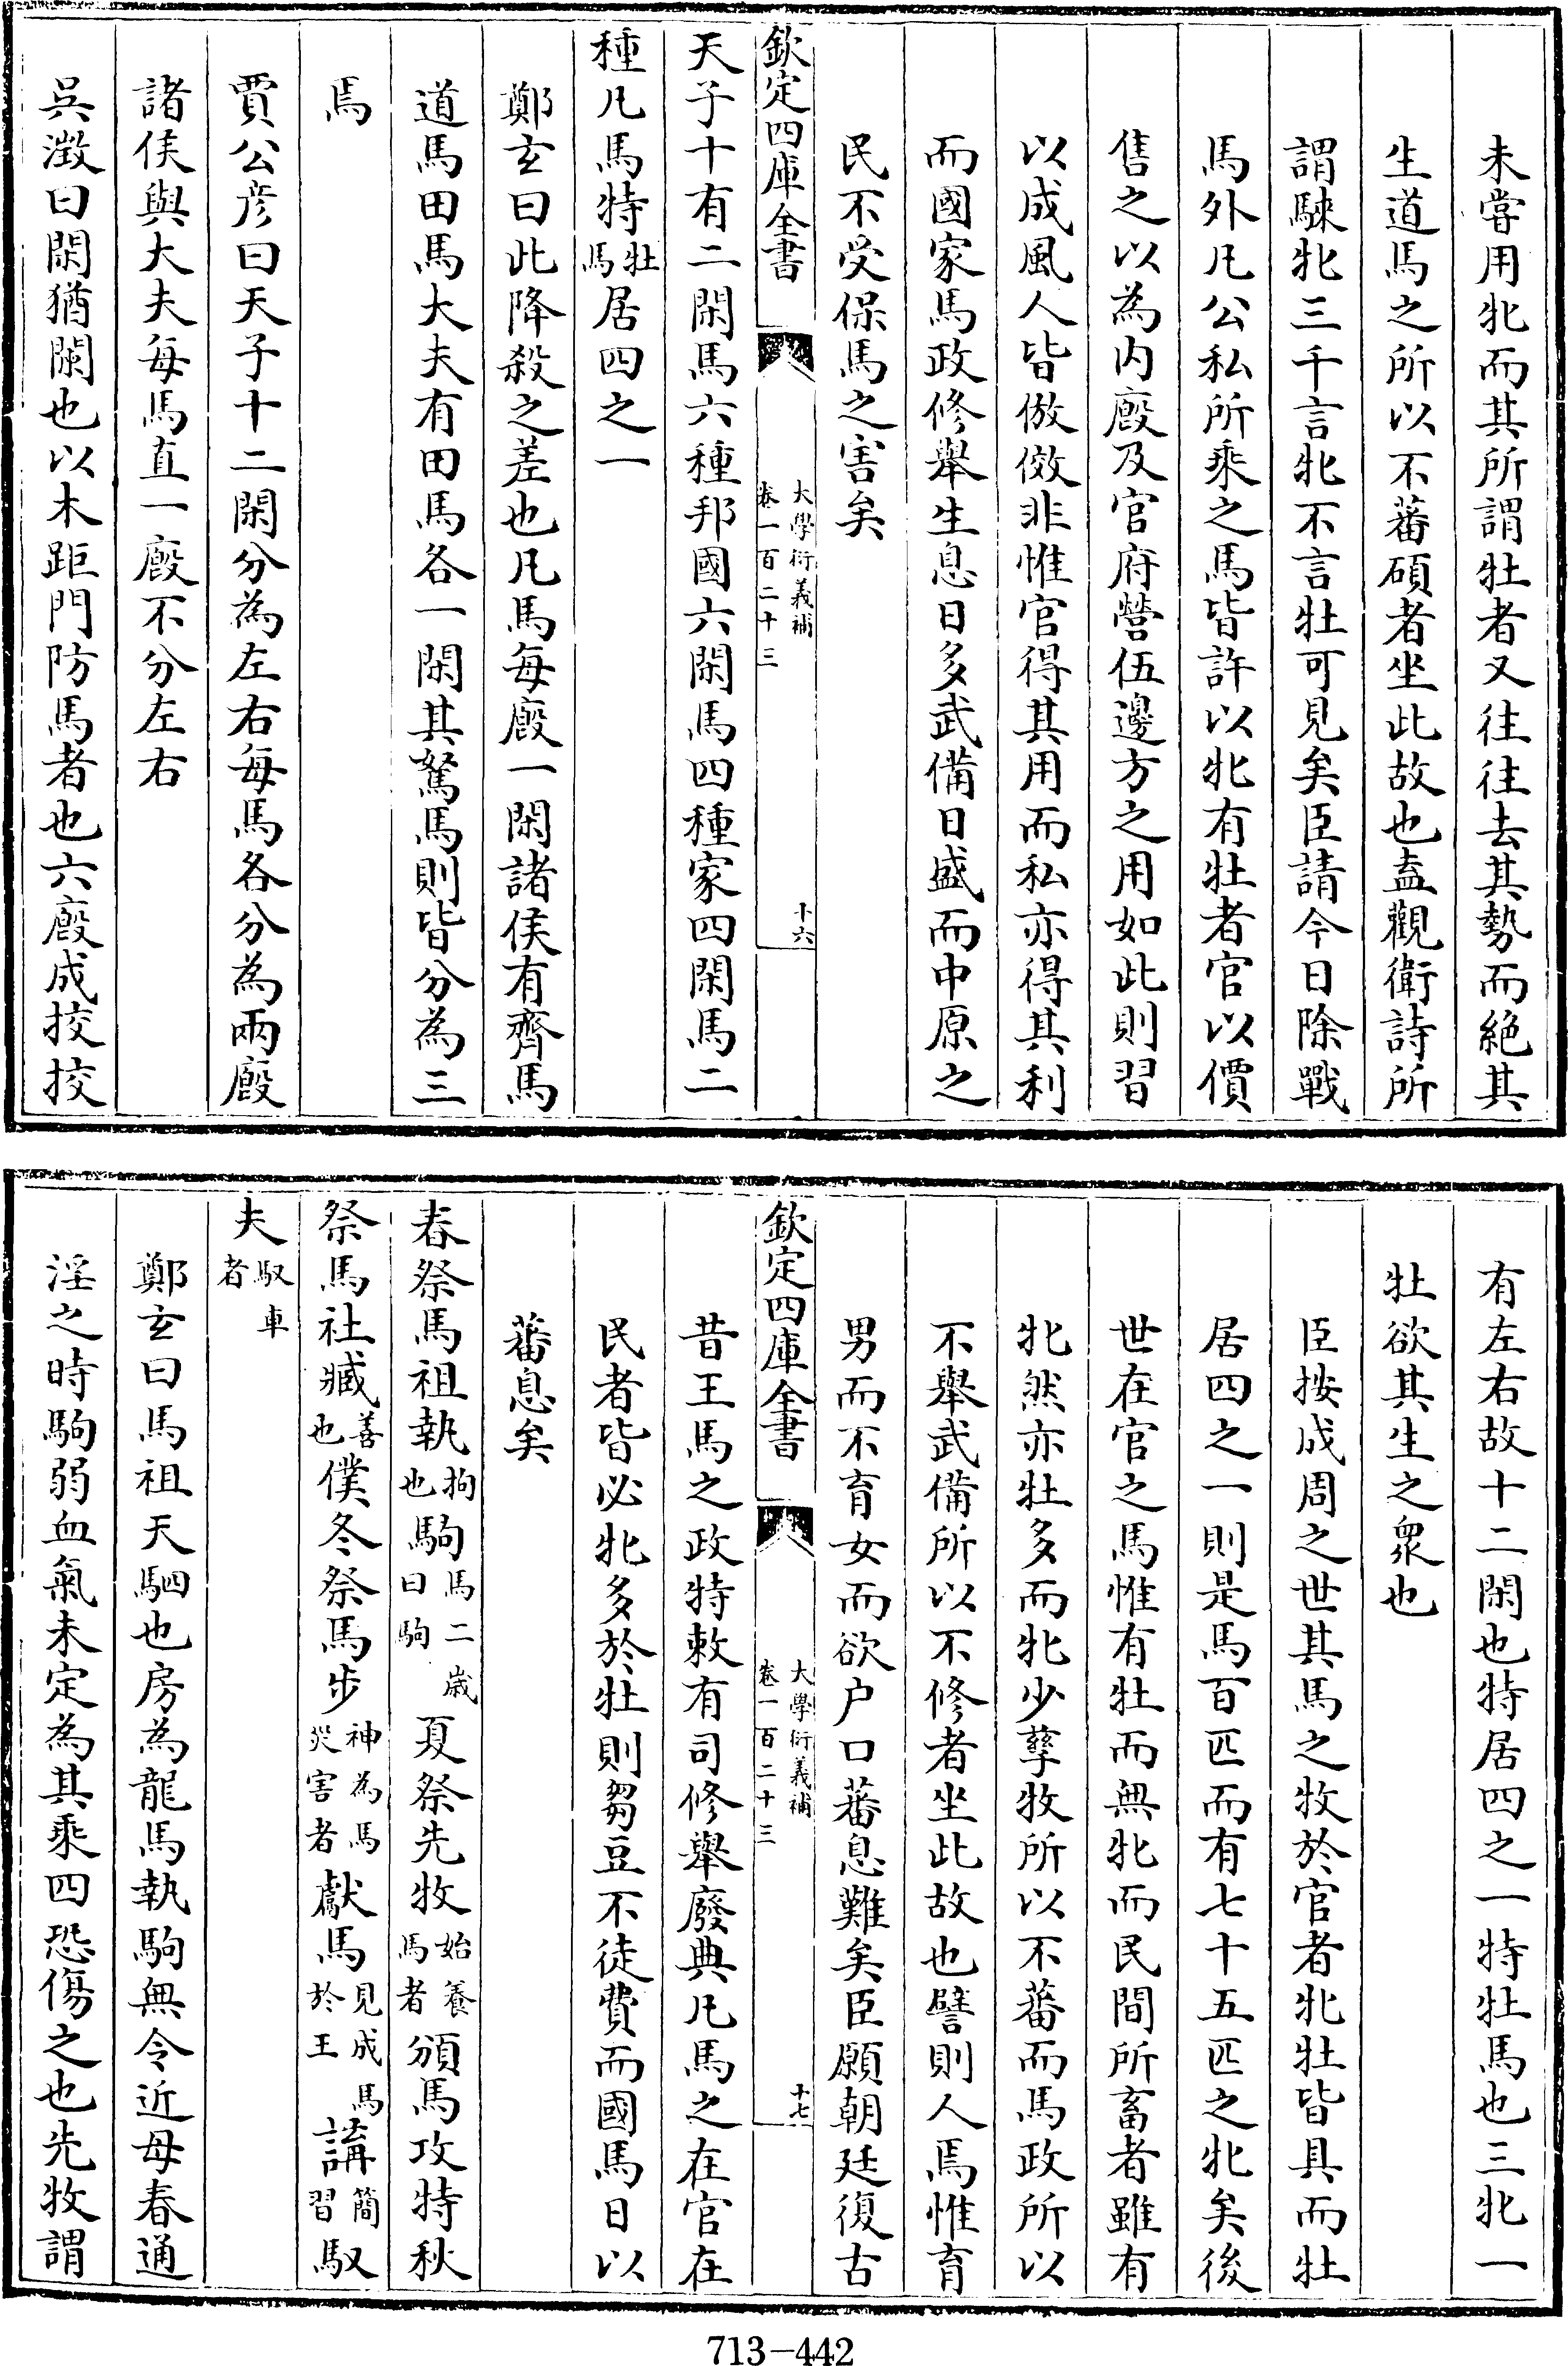 未嘗用牝而其所謂牡者又往往去其勢而絶其
生道馬之所以不蕃碩者坐此故也盖觀衛詩所
謂騋牝三千言牝不言牡可見矣臣請今日除戰
馬外凡公私所乘之馬皆許以牝有牡者官以價
售之以為内廄及官府營伍邊方之用如此則習
以成風人皆倣傚非惟官得其用而私亦得其利
而國家馬政修舉生息日多武備日盛而中原之
民不受保馬之害矣
欽定四庫全書
大學衍義補
卷一百二十三
十六
天子十有二閑馬六種邦國六閑馬四種家四閑馬二
種凡馬特牡馬居四之一
鄭玄曰此降殺之差也凡馬每廄一閑諸侯有齊馬
道馬田馬大夫有田馬各一閑其駑馬則皆分為三
馬
賈公彦曰天子十二閑分為左右每馬各分為兩廄
諸侯與大夫每馬直一廄不分左右
吳澂曰閑猶闌也以木距門防馬者也六廄成挍挍
有左右故十二閑也特居四之一特牡馬也三牝一
牡欲其生之衆也
臣按成周之世其馬之牧於官者牝牡皆具而牡
居四之一則是馬百匹而有七十五匹之牝矣後
世在官之馬惟有牡而無牝而民間所畜者雖有
牝然亦牡多而牝少孳牧所以不蕃而馬政所以
不舉武備所以不修者坐此故也譬則人焉惟育
男而不育女而欲户口蕃息難矣臣願朝廷復古
欽定四庫全書
大學衍義補
卷一百二十三
十七
昔王馬之政特敕有司修舉廢典凡馬之在官在
民者皆必牝多於牡則芻豆不徒費而國馬日以
蕃息矣
春祭馬祖執拘也駒馬二歳曰駒夏祭先牧始養馬者頒馬攻特秋
祭馬社臧善也僕冬祭馬步神為馬災害者獻馬見成馬於王講簡習馭
夫馭車者
鄭玄曰馬祖天駟也房為龍馬執駒無令近母春通
淫之時駒弱血氣未定為其乘四恐傷之也先牧謂
713-442